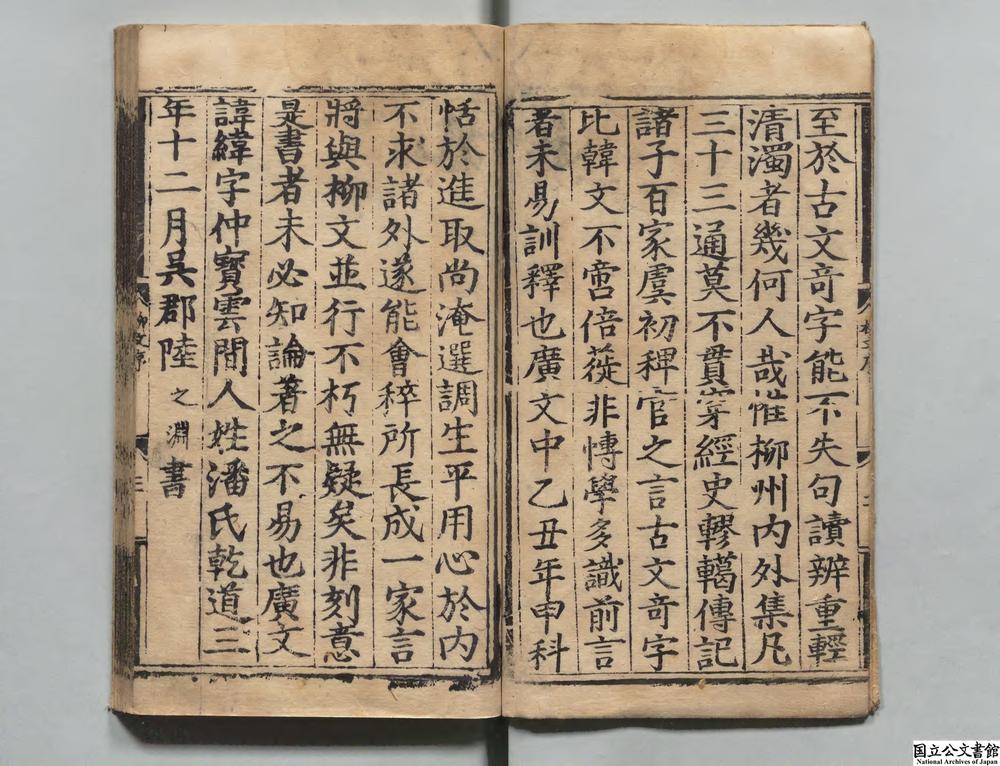 至於古文竒字能不失句讀辨重輕
清濁者幾何人㦲惟柳州内外集凡
三十三通莫不貫穿經史轇轕傳記
諸子百家虞初稗官之言古文竒字
比韓文不啻倍蓰非愽學多識前言
者未易訓釋也廣文中乙丑年甲科
恬於進取尚淹選調生平用心於内
不求諸外遂能會稡所長成一家言
將與柳文並行不朽無疑矣非刻意
是書者未必知論著之不易也廣文
諱緯字仲寳雲間人姓潘氏乾道三
年十二月吳郡陸之淵書
柳文序
三
国立公文書館
National Archives of Japan